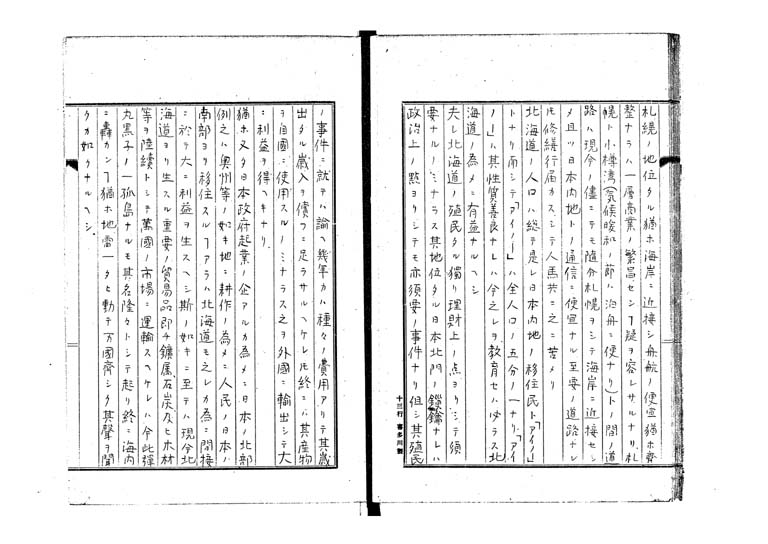 札幌ノ地位タル猶ホ海岸ニ近接シ舟航ノ便宜猶ホ充
整ナラハ一層商業ノ繁昌センコ疑ヲ容レサルナリ札
幌ト小樽湾(気候暖和ノ節ハ泊舟ニ便ナリ)トノ間ノ道
路ハ現今ノ儘ニテモ随分札幌ヲシテ海岸ニ近接セシ
メ且ツ日本内地トノ通信ニ便宜ナル至要ノ道路ナレ
𪜈修繕行届カスシテ人馬共ニ之ニ苦メリ
北海道ノ人口ハ総テ是レ日本内地ノ移住民ト「アイノ」
トナリ而シテ「アイノ」ハ全人口ノ五分ノ一ナリ「アイ
ノ」ハ其性質善良ナレハ今之レヲ教育セハ必ラス北
海道ノ為メニ有益ナルヘシ
夫レ北海道ノ殖民タル獨リ理財上ノ点ヨリシテ須
要ナルノミナラス其地位タル日本北門ノ鎖鑰ナレハ
政治上ノ點ヨリシテモ亦須要ノ事件ナリ但シ其殖民
ノ事件ニ就テハ諭ヘ幾年カハ種々ノ費用アリテ其歳
出タル歳入ヲ償フニ足ラサルヘケレ𪜈終ニハ其産物
ヲ自國ニ使用スルノミナラス之ヲ外國ニ輸出シテ大
ニ利益ヲ得ヘキナリ
猶ホ又タ日本政府起業ノ企アルカ為メニ日本ノ北部
例之ハ奥州等ノ如キ地ニ耕作ノ為メニ人民ノ日本ノ
南部ヨリ移住スルコアラハ北海道モ之レカ為ニ間接
ニ於テ大ニ利益ヲ生スヘシ斯ノ如キニ至テハ現今北
海道ヨリ生スル重要ノ貿易品即チ鑛属石炭及ヒ木材
等ヲ陸續トシテ萬國ノ市場ニ運輸スヘケレハ今此弾
丸黒子ノ一孤島ナルモ其名隆々トシテ起リ終ニ海内
ニ轟カンコ猶ホ地雷一タヒ動テ万國齊シク其聲ヲ聞
クカ如クナルヘシ
十三行 喜多川製